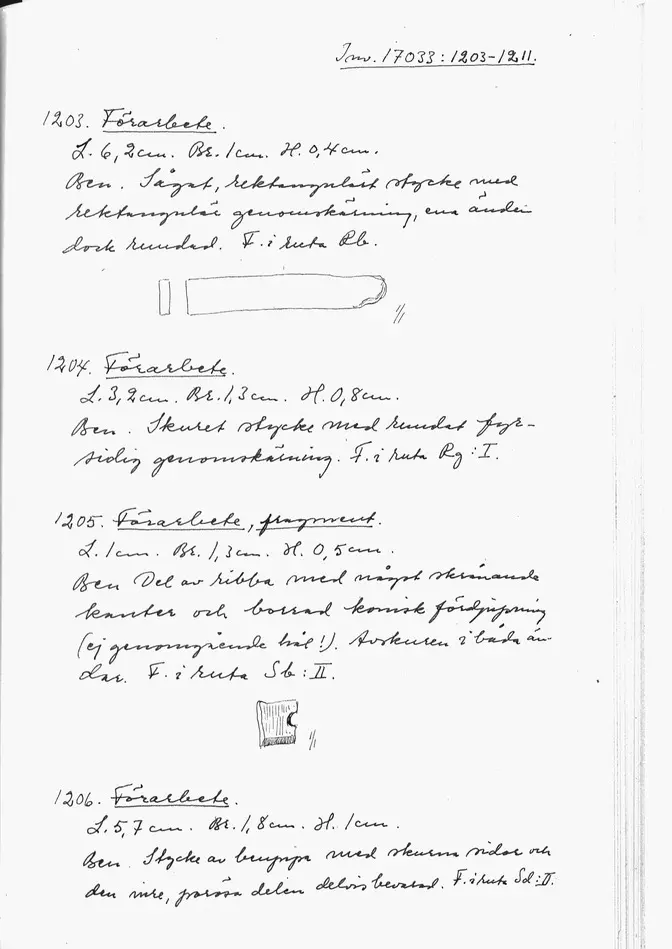 Inv. 17033:1203-1211.
1203. Förarbete.
L. 6,2cm. Br. 1cm. H. 0,4cm.
Ben. Sågat, rektangulärt stycke med
rektangulär genomskärning, ena änden
dock rundad. F. i ruta Rb.
1/1
1204. Förarbete.
L. 3,2cm. Br. 1,3cm. H. 0,8cm.
Ben. Skuret stycke med rundat fyr-
sidig genomskärning. F. i ruta Rg:I.
1205. Förarbete, fragment.
L. 1cm. Br. 1,3cm. H. 0,5cm.
Ben Del av ribba med något skrånande
kanter och borrad konisk fördjupning
(ej genomgående hål!). Avskuren i båda än-
dar. F. i ruta Sb:II.
1/1
1206. Förarbete.
L. 5,7cm. Br. 1,8cm. H. 1cm.
Ben. Stycke av benpipa med skurna sidor och
den inre, porösa delen delvis bevarad. F. i ruta Sd:II.